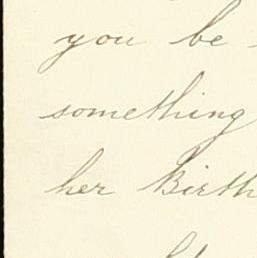 you be
something
her Birth